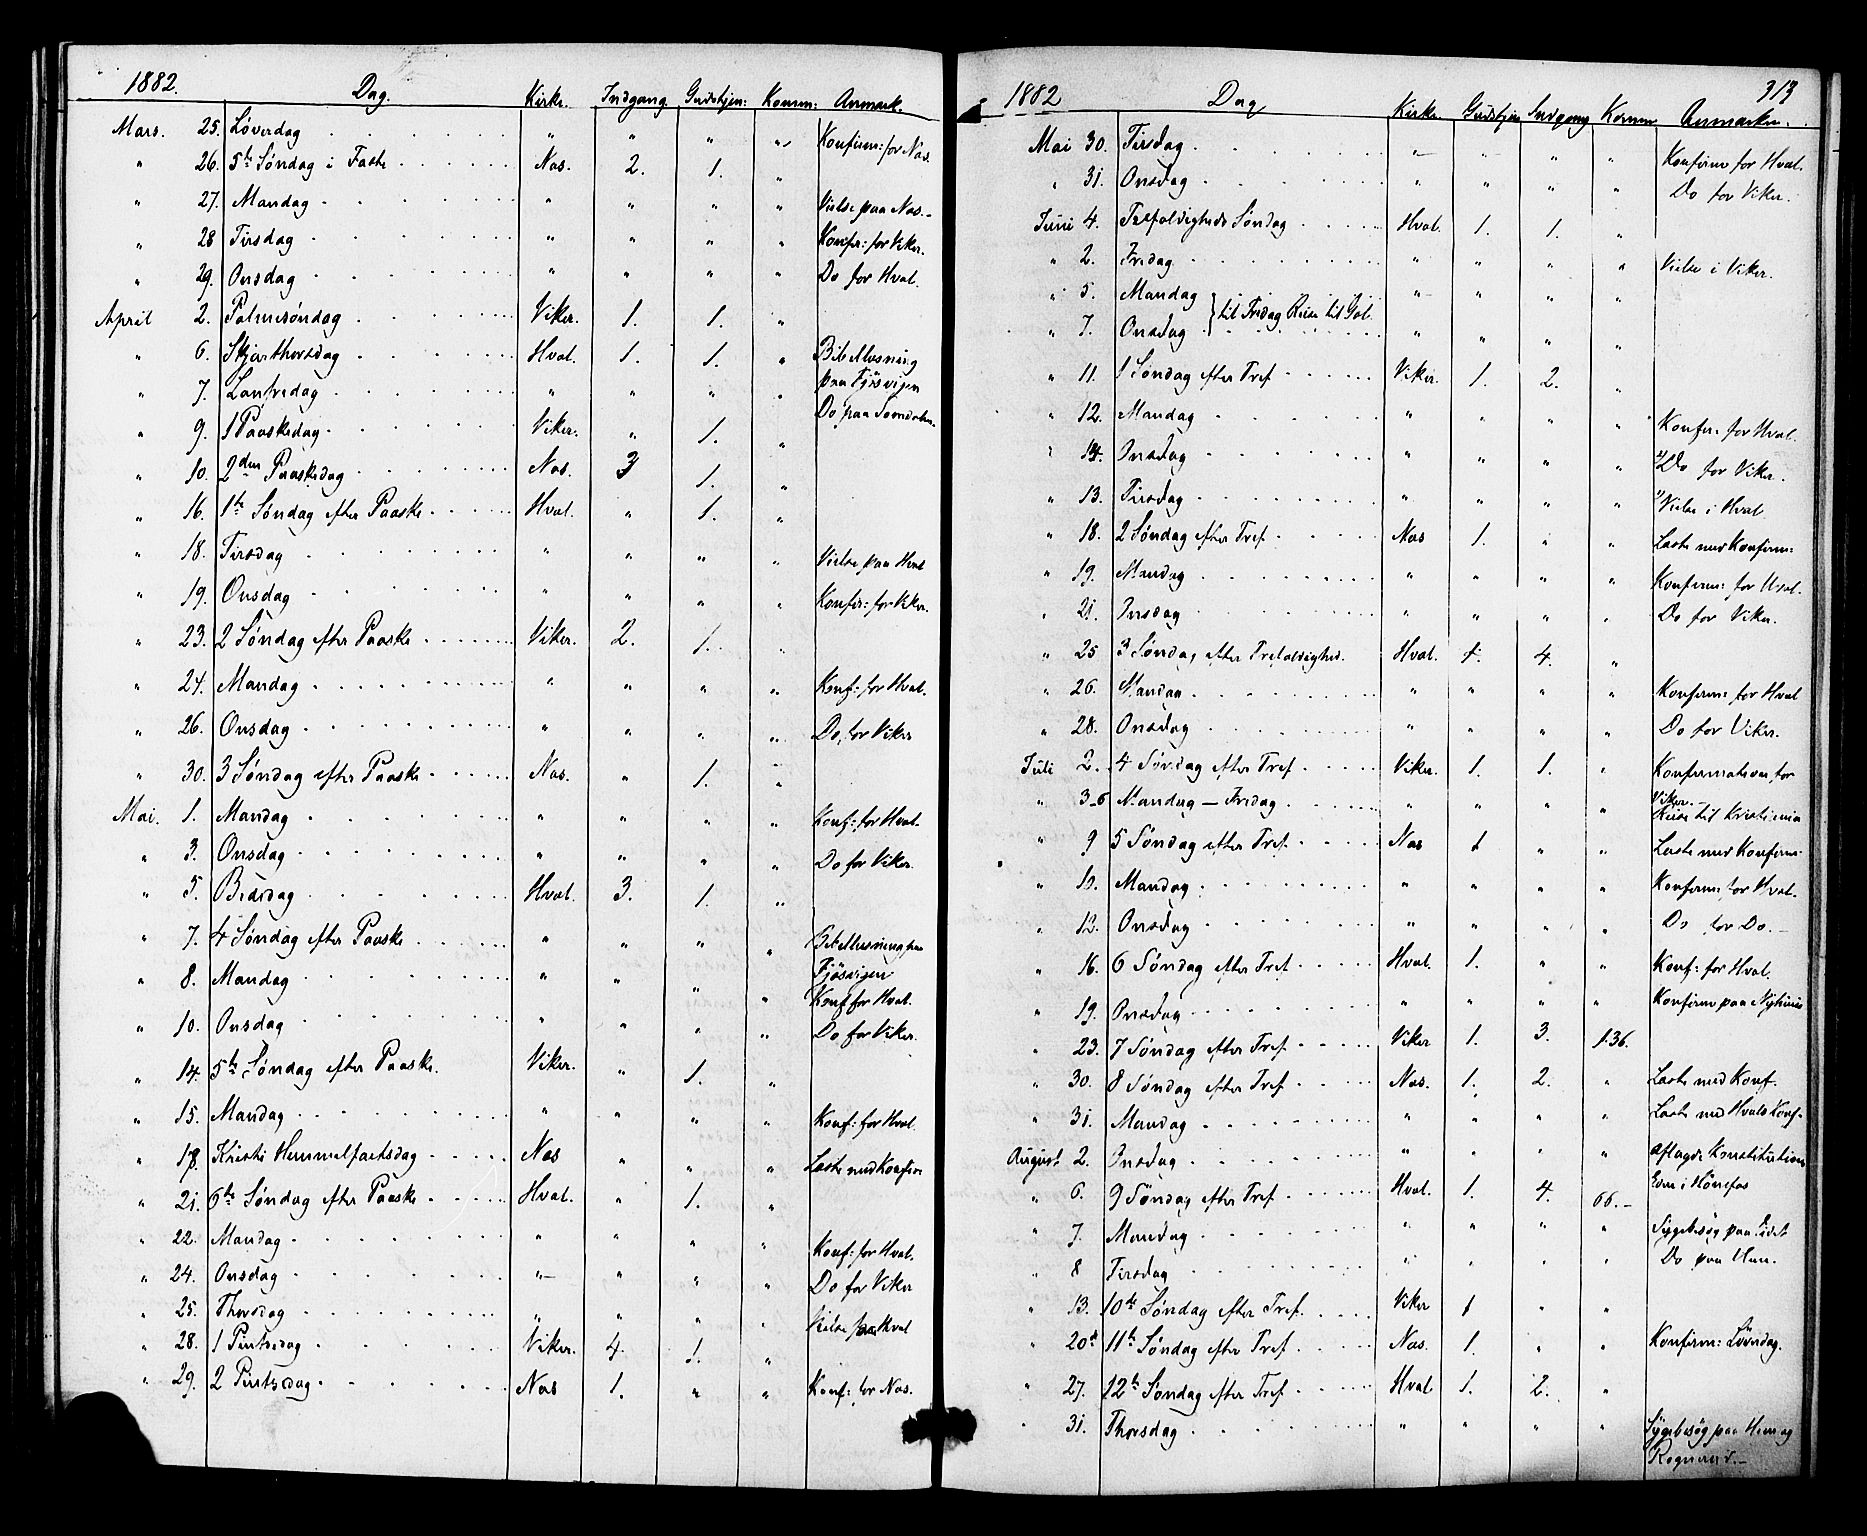 1882. Dag. Kirke. Indgang Gudstjen: Komm: Anmærk.
Mars. 25. Løverdag . . . . . . " " " " Konfirm: for Næs.
" 26. 5te Søndag i Faste . . . . . Næs. 2. 1. "
" 27. Mandag . . . . . . " " " " Vielse paa Næs.-
" 28 Tirsdag . . . . . . " " " " Konfir: for Viker.
" 29. Onsdag . . . . . . " " " " Do for Hval.
April 2. Palmesøndag . . . . . . Viker. 1. 1. "
" 6. Skjærthorsdag . . . . . . Hval. 1. 1. " Bibellæsning
paa Fjøsvigen
" 7. Langfredag . . . . . . " " " " Do paa
" 9. 1 Paaskedag . . . . . . Viker. " 1. "
" 10. 2den Paaskedag . . . . . Næs. 3 1. "
" 16. 1te Søndag efter Paaske . . . . . Hval. " 1. "
" 18. Tirsdag . . . . . . " " " " Vielse paa Hval
" 19. Onsdag . . . . . . " " " " Konfir: for Viker.
" 23. 2 Søndag efter Paaske . . . . . Viker. 2. 1. "
" 24. Mandag . . . . . . " " " " Konf: for Hval.
" 26. Onsdag . . . . . . " " " " Do, for Viker
" 30. 3 Søndag efter Paaske . . . . . Næs. " 1. "
Mai. 1. Mandag . . . . . . " " " " Konf: for Hval.
" 3. Onsdag . . . . . . " " " " Do for Viker.
" 5. Bededag . . . . . . Hval. 3. 1. "
" 7. 4 Søndag efter Paaske . . . . . " " " " Bibellæsning paa
Fjøsvigen
" 8. Mandag . . . . . . " " " " Konf for Hval.
" 10. Onsdag . . . . . . " " " " Do for Viker.
" 14. 5te Søndag efter Paaske. Viker. " 1. "
" 15. Mandag . . . . . . " " " " Konf: for Hval.
" 18. Kristi Himmelfartsdag . . . . . Næs " " " Læste med Konfirm
" 21. 6te Søndag efter Paaske . . . . . Hval. " 1. "
" 22. Mandag . . . . . . " " " " Konf: for Hval.
" 24. Onsdag . . . . . . " " " " Do for Viker
" 25. Thorsdag . . . . . . " " " " Vielse paa Hval
" 28. 1 Pintsedag . . . . . . Viker. 4. 1. "
" 29. 2 Pintsedag . . . . . . Næs 1. " " Konf: for Næs.
313
1882 Dag Kirke. Gudstjen Indgang Komm Anmærkn.
Mai 30. Tirsdag . . . . . . " " " " Konfirm for Hval.
" 31. Onsdag . . . . . . " " " " Do for Viker.
Juni 4. Trefoldigheds Søndag . . . . Hval. 1. 1. "
" 2. Fredag . . . . . . " " " " Vielse i Viker.
" 5. Mandag } til Fredag Reise til Gol. " " " "
" 7. Onsdag " " " "
" 11. 1 Søndag efter Tref . . . . . Viker. 1. 2. "
" 12. Mandag . . . . . . " " " " Konfir: for Hval.
" 14. Onsdag . . . . . . " " " " Do for Viker.
" 13. Tirsdag . . . . . . " " " " Vielse i Hval
" 18. 2 Søndag efter Tref . . . . . Næs 1. " " Læste med Konfirm:
" 19. Mandag . . . . . . " " " " Konfirm: for Hval.
" 21. Onsdag . . . . . . " " " " Do for Viker.
" 25 3 Søndag efter Trefoldighed. Hval. 1. 4. "
" 26. Mandag . . . . . . " " " " Konfirm: for Hval
" 28. Onsdag . . . . . . " " " " Do for Viker.
Juli 2. 4 Søndag efter Tref . . . . . Viker. 1. 1. " Konfirmation for
Viker.-
" 3-6 Mandag — Fredag . . . . . " " " " Reise til Kristiania
" 9 5 Søndag efter Tref. . . . . . Næs 1 " " Læste med Konfirm.
" 10. Mandag . . . . . . " " " " Konfirm: for Hval.
" 12. Onsdag . . . . . . " " " " Do for Do.-
" 16. 6 Søndag efter Tref . . . . . Hval. 1. " " Konf: for Hval.
" 19. Onsdag . . . . . . " " " " Konfirm paa
" 23. 7 Søndag efter Tref . . . . . Viker 1. 3. 136.
" 30. 8 Søndag efter Tref . . . . . Næs. 1. 2. " Læste med Konf.
" 31. Mandag . . . . . . " " " " Læste med Hvals Konf.
August 2. Onsdag . . . . . . " " " " aflagde Konstitutions
Eden i Hønefos
" 6. 9 Søndag efter Tref . . . . . Hval. 1. 4. 66.-
" 7. Mandag . . . . . . " " " " Sygebesøg paa Lidet
" 8 Tirsdag . . . . . . " " " " Do paa Hem.
" 13. 10de Søndag efter Tref. . . . . Viker 1 " "
" 20de 11te Søndag efter Tref . . . . . Næs. 1. " " Konfirm: Løverdag.
" 27. 12te Søndag efter Tref . . . . . Hval 1. 2. "
" 31. Thorsdag . . . . . . " " " " Sygebesøg paa Hem og
Rognerud.-